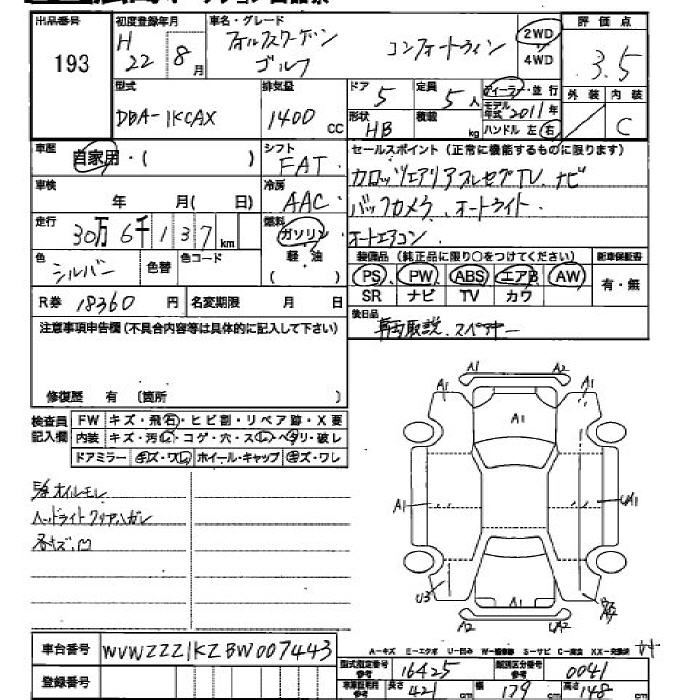 出品番号 193
初度登録年月 H 22 8月
車名・グレード フォルクスワーゲン ゴルフ コンフォートライン
2WD 4WD
評価点 3.5
外装 内装 C
型式 DBA-1KCAX
排気量 1400 cc
ドア 5 定員 5人
形状 HB 積載 kg
ディーラー・並行
モデル年式 2011年
ハンドル 左 右
車歴 自家用・( )
シフト FAT
セールスポイント (正常に機能するものに限ります)
カロッツェリア フルセグTV、ナビ
バックカメラ、オートライト、
オートエアコン
車検 年 月( 日)
冷房 AAC
走行 30万6千137km
燃料 ガソリン 軽・油 ( )
色 シルバー 色替 色コード
装備品 (純正品に限り○をつけてください) 新車保証書
PS PW ABS エアB AW 有・無
SR ナビ TV カワ
R券 18360円 名変期限 月 日
後日品
車両取説、スペアキー
注意事項申告欄 (不具合内容等は具体的に記入して下さい)
修復歴 有 〔箇所 〕
検査員記入欄
FW キズ・飛石・ヒビ割・リペア跡・X要
内装 キズ・汚レ・コゲ・穴・スレ・ヘタリ・破レ
ドアミラー キズ・ワレ ホイール・キャップ キズ・ワレ
オイルモレ
ヘッドライトクリアハガレ
A1 A2
A1 A1 A1
A1 UA1
U3
A2 UA2
車台番号 WVWZZZ1KZBW007443
A-キズ E-エクボ U-凹み W-補修跡 S-サビ C-腐食 XX-交換済
登録番号
型式指定番号 参考 16425 類別区分番号 参考 0041
長さ 421 cm 幅 179 cm 高さ 148 cm